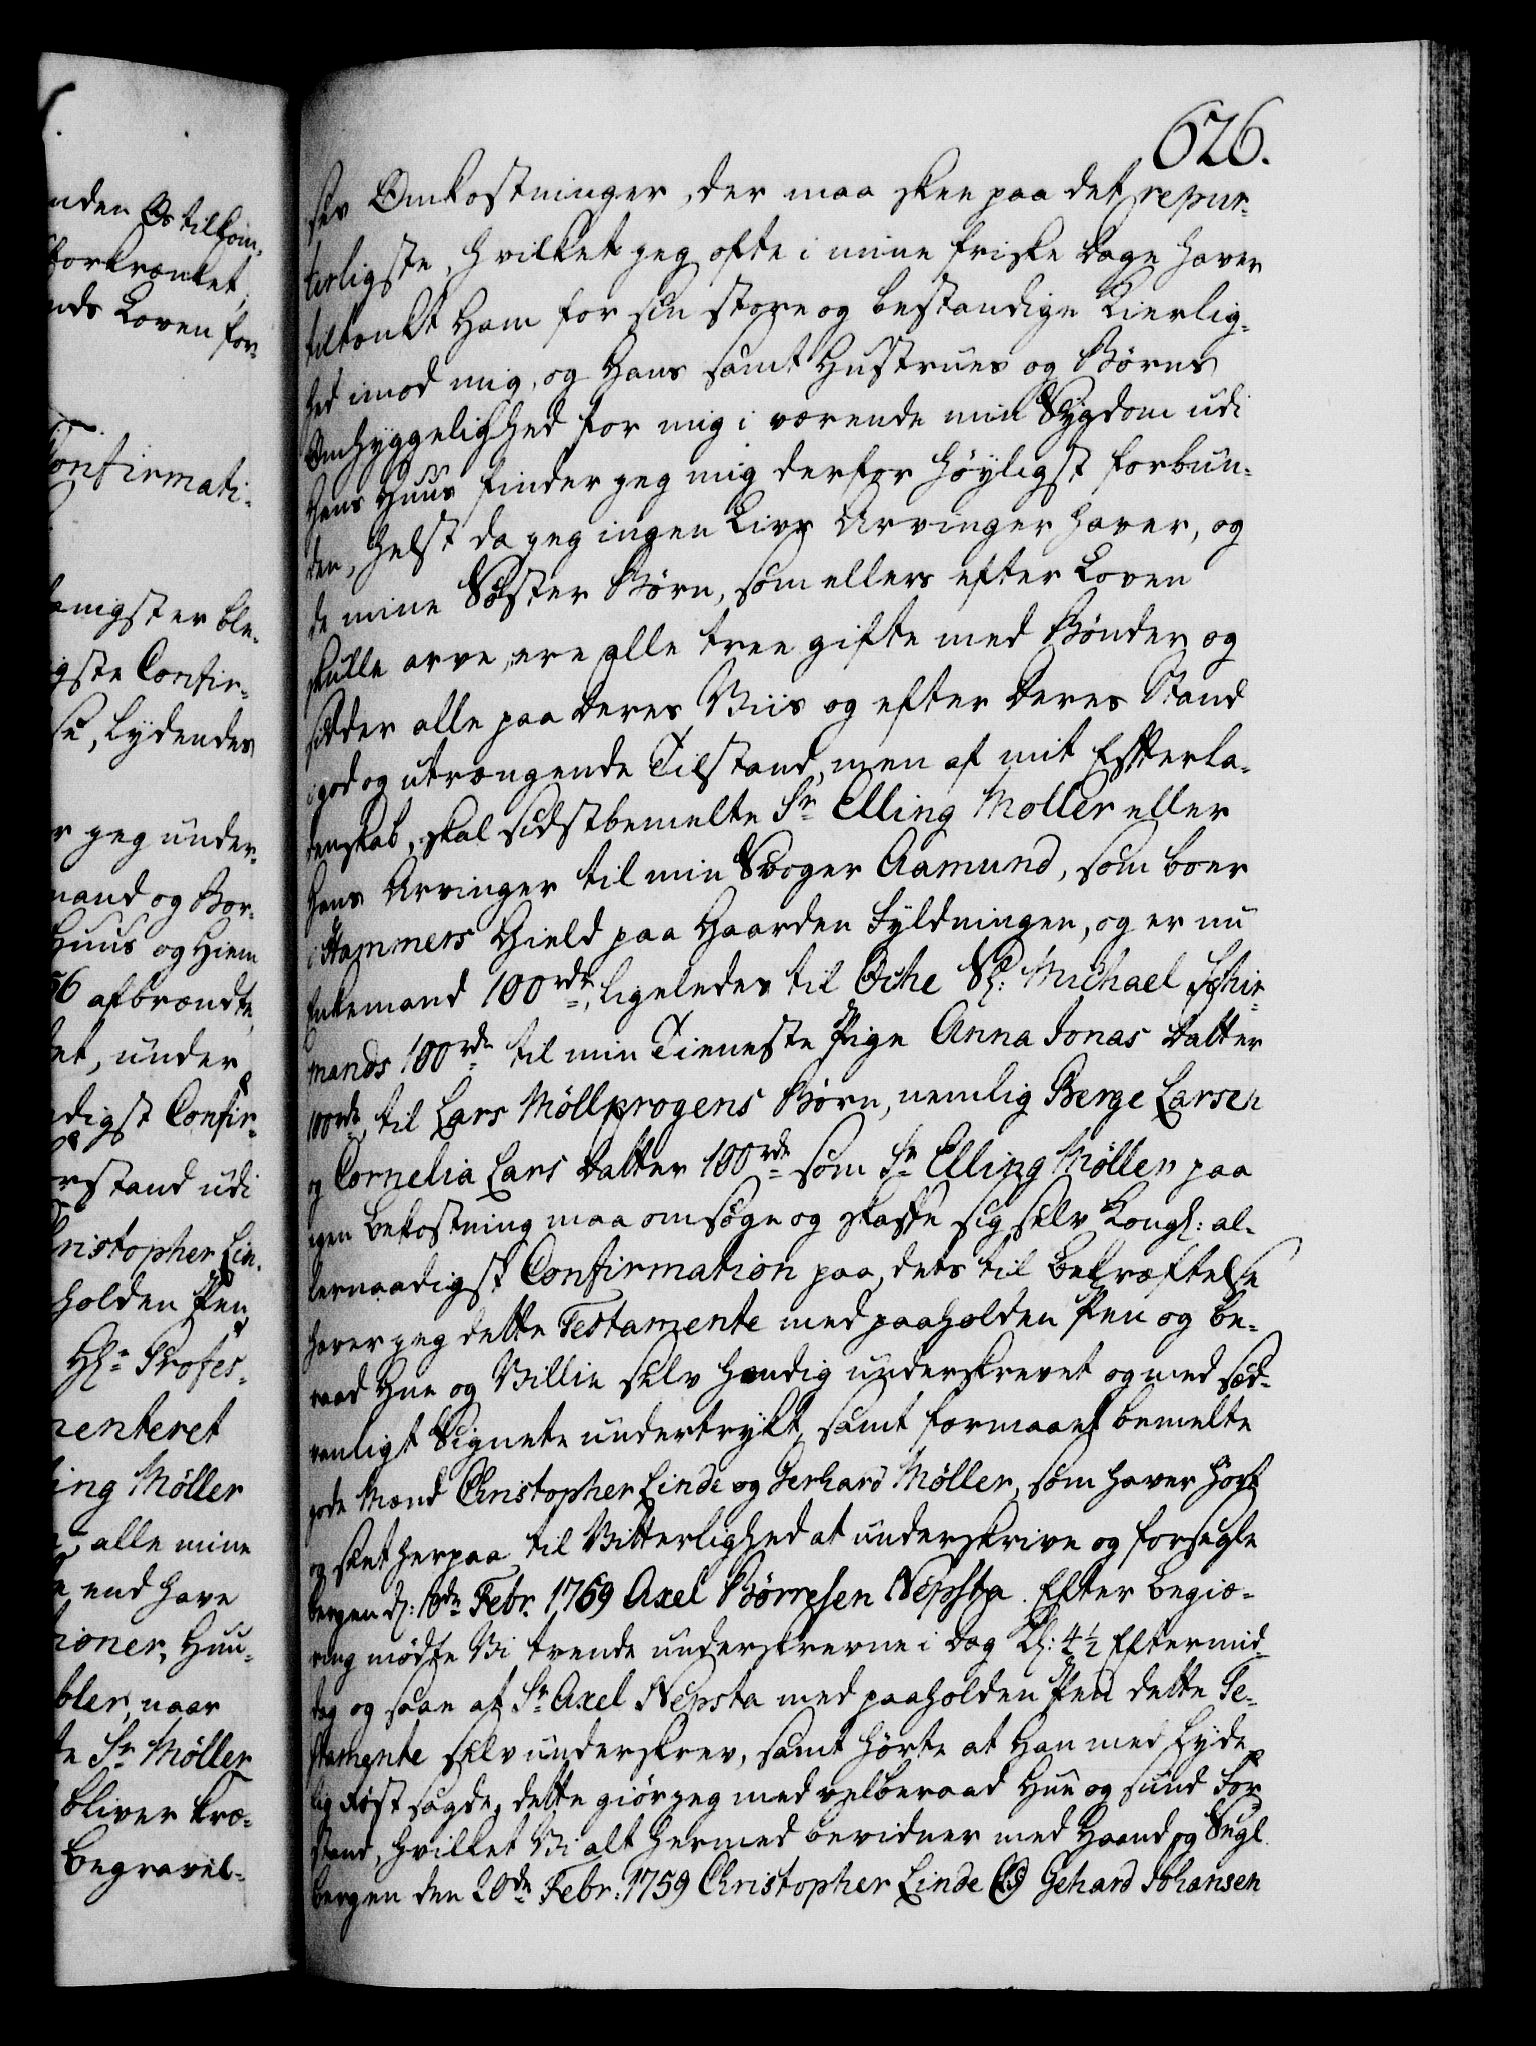 626.
ses Omkostninger, der maa skee paa det repur-
terligste, hvilket jeg ofte i mine friske Dage haver
tiltænkt Ham for sin store og bestandige Kierlig-
hed imod mig, og Hans samt Hustrues og Børns
Omhyggelighed for mig i værende min Sygdom udi
Hans Huus finder jeg mig derfor høyligst forbun-
den, helst da jeg ingen Livs Arvinger haver, og
de mine Søster Børn, som ellers efter Loven
skulle arve, ere alle tree gifte med Bønder og
sidder alle paa deres Viis og efter deres Stand
i god og utrængende Tilstand, men af mit Efterla-
denskab, skal sidstbemelte Sr Elling Møller eller
Hans Arvinger til min Svoger Aamund, som boer
i Hammers Gield paa Gaarden Fyldningen, og er nu
Enkemand 100 rdr, ligeledes til Oche Sl: Michael Schir-
mands 100 rdr til min Tieneste Pige Anna Jonas Datter
100 rdr, til Lars Möllprogens Børn, nemlig Berge Larsen
og Cornelia Lars Datter 100 rdr som Sr Elling Møller paa
egen Bekostning maa omsøge og skaffe sig selv Kongl: al-
lernaadigst Confirmation paa, dets til Bekræftelse
haver jeg dette Testamente med paaholden Pen og be-
raad Hue og Villie selv hændig underskrevet og med sæd-
vanligt Signete undertrykt, samt formaaet bemelte
gode Mænd Christopher Linde og Gerhard Møller, som haver hørt
og seet herpaa til Vitterlighed at underskrive og forsegle
Bergen d: 10de Febr. 1769 Axel Børresen Nepsta. Efter Begiæ-
ring mødte Vi tvende underskrevne i Dag Kl: 4½ Eftermid-
dag og saae at Sr Axel Nepsta med paaholden Pen dette Te-
stamente selv underskrev, samt hørte at Han med lyde-
lig Røst sagde, dette giør jeg med velberaad Hue og sund For-
stand, hvilket Vi alt hermed bevidner med Haand og Segl.
Bergen den 20de Febr: 1759 Christopher Linde (LS) Gehard Johansen
nden Os tilkom-
forkrænket,
nds Loven for-
Confirmati-
danigster be-
igste Confir-
se, Lydendes
r jeg under-
mand og Bor-
Huus og Hiem
56 afbrændte,
et, under
digst Confir-
orstand udi
Christopher Lin-
holden Pen
Hr Profes-
menteret
ling Møller
alle mine
e end have
tioner, Huu-
bler, naar
te Sr Møller
bliver kræ-
Begravel-